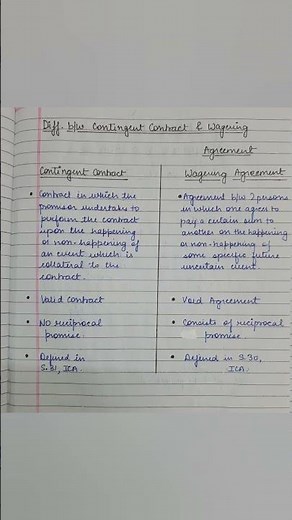 Diff. b/w Contingent Contract & Wagering
Agreement
Contingent Contract
• Contract in which the
promisor undertakes to
perform the contract
upon the happening
or non-happening of
an event which is
collateral to the
contract.
• Valid Contract
• No reciprocal
promise
• Defined in
S.31, ICA
Wagering Agreement
• Agreement b/w 2 persons
in which one agrees to
pay a certain sum to
another on the happening
or non-happening of
some specific future
uncertain event
• Void Agreement
• Consists of reciprocal
promise
• Defined in S.30,
ICA.